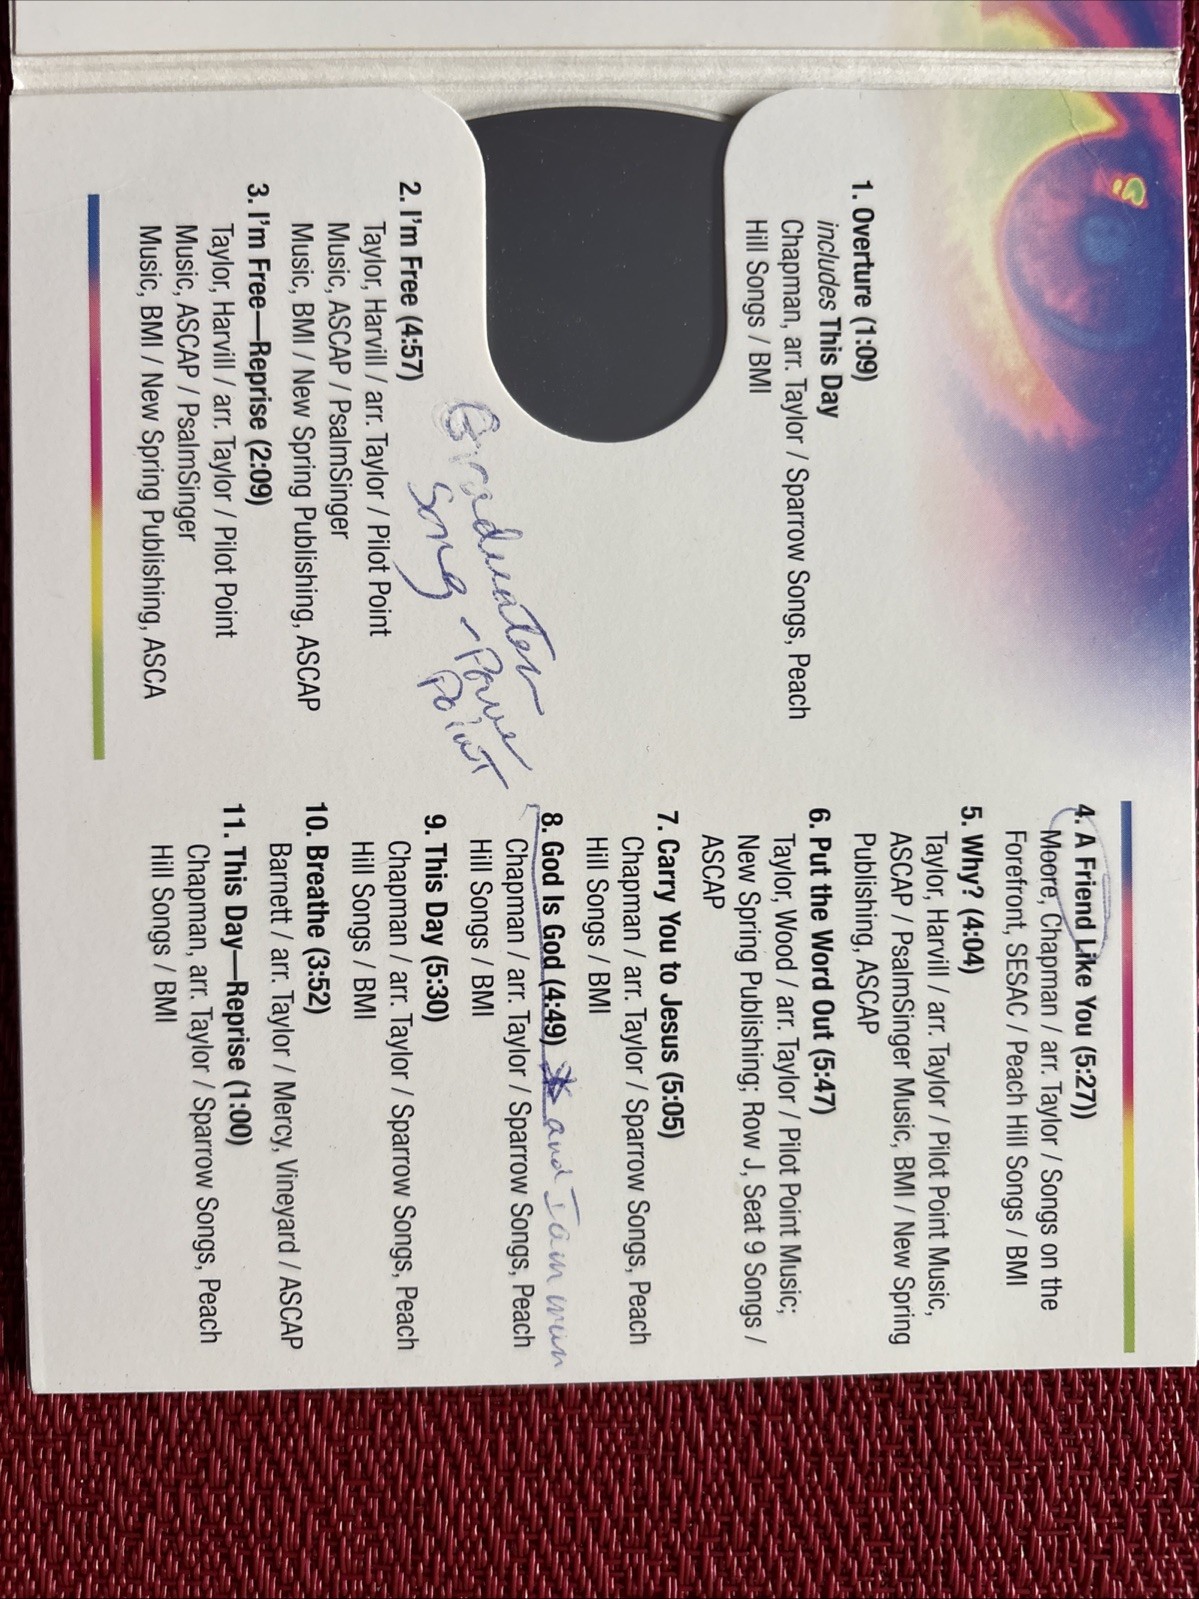 1. Overture (1:09)
includes This Day
Chapman, arr. Taylor / Sparrow Songs, Peach
Hill Songs / BMI
2. I'm Free (4:57)
Taylor, Harvill / arr. Taylor / Pilot Point
Music, ASCAP / PsalmSinger
Music, BMI / New Spring Publishing, ASCAP
3. I'm Free—Reprise (2:09)
Taylor, Harvill / arr. Taylor / Pilot Point
Music, ASCAP / PsalmSinger
Music, BMI / New Spring Publishing, ASCA
Song - Power
Point
4. A Friend Like You (5:27))
Moore, Chapman / arr. Taylor / Songs on the
Forefront, SESAC / Peach Hill Songs / BMI
5. Why? (4:04)
Taylor, Harvill / arr. Taylor / Pilot Point Music,
ASCAP / PsalmSinger Music, BMI / New Spring
Publishing, ASCAP
6. Put the Word Out (5:47)
Taylor, Wood / arr. Taylor / Pilot Point Music;
New Spring Publishing; Row J, Seat 9 Songs /
ASCAP
7. Carry You to Jesus (5:05)
Chapman / arr. Taylor / Sparrow Songs, Peach
Hill Songs / BMI
8. God Is God (4:49) * and I am man
Chapman / arr. Taylor / Sparrow Songs, Peach
Hill Songs / BMI
9. This Day (5:30)
Chapman / arr. Taylor / Sparrow Songs, Peach
Hill Songs / BMI
10. Breathe (3:52)
Barnett / arr. Taylor / Mercy, Vineyard / ASCAP
11. This Day—Reprise (1:00)
Chapman, arr. Taylor / Sparrow Songs, Peach
Hill Songs / BMI